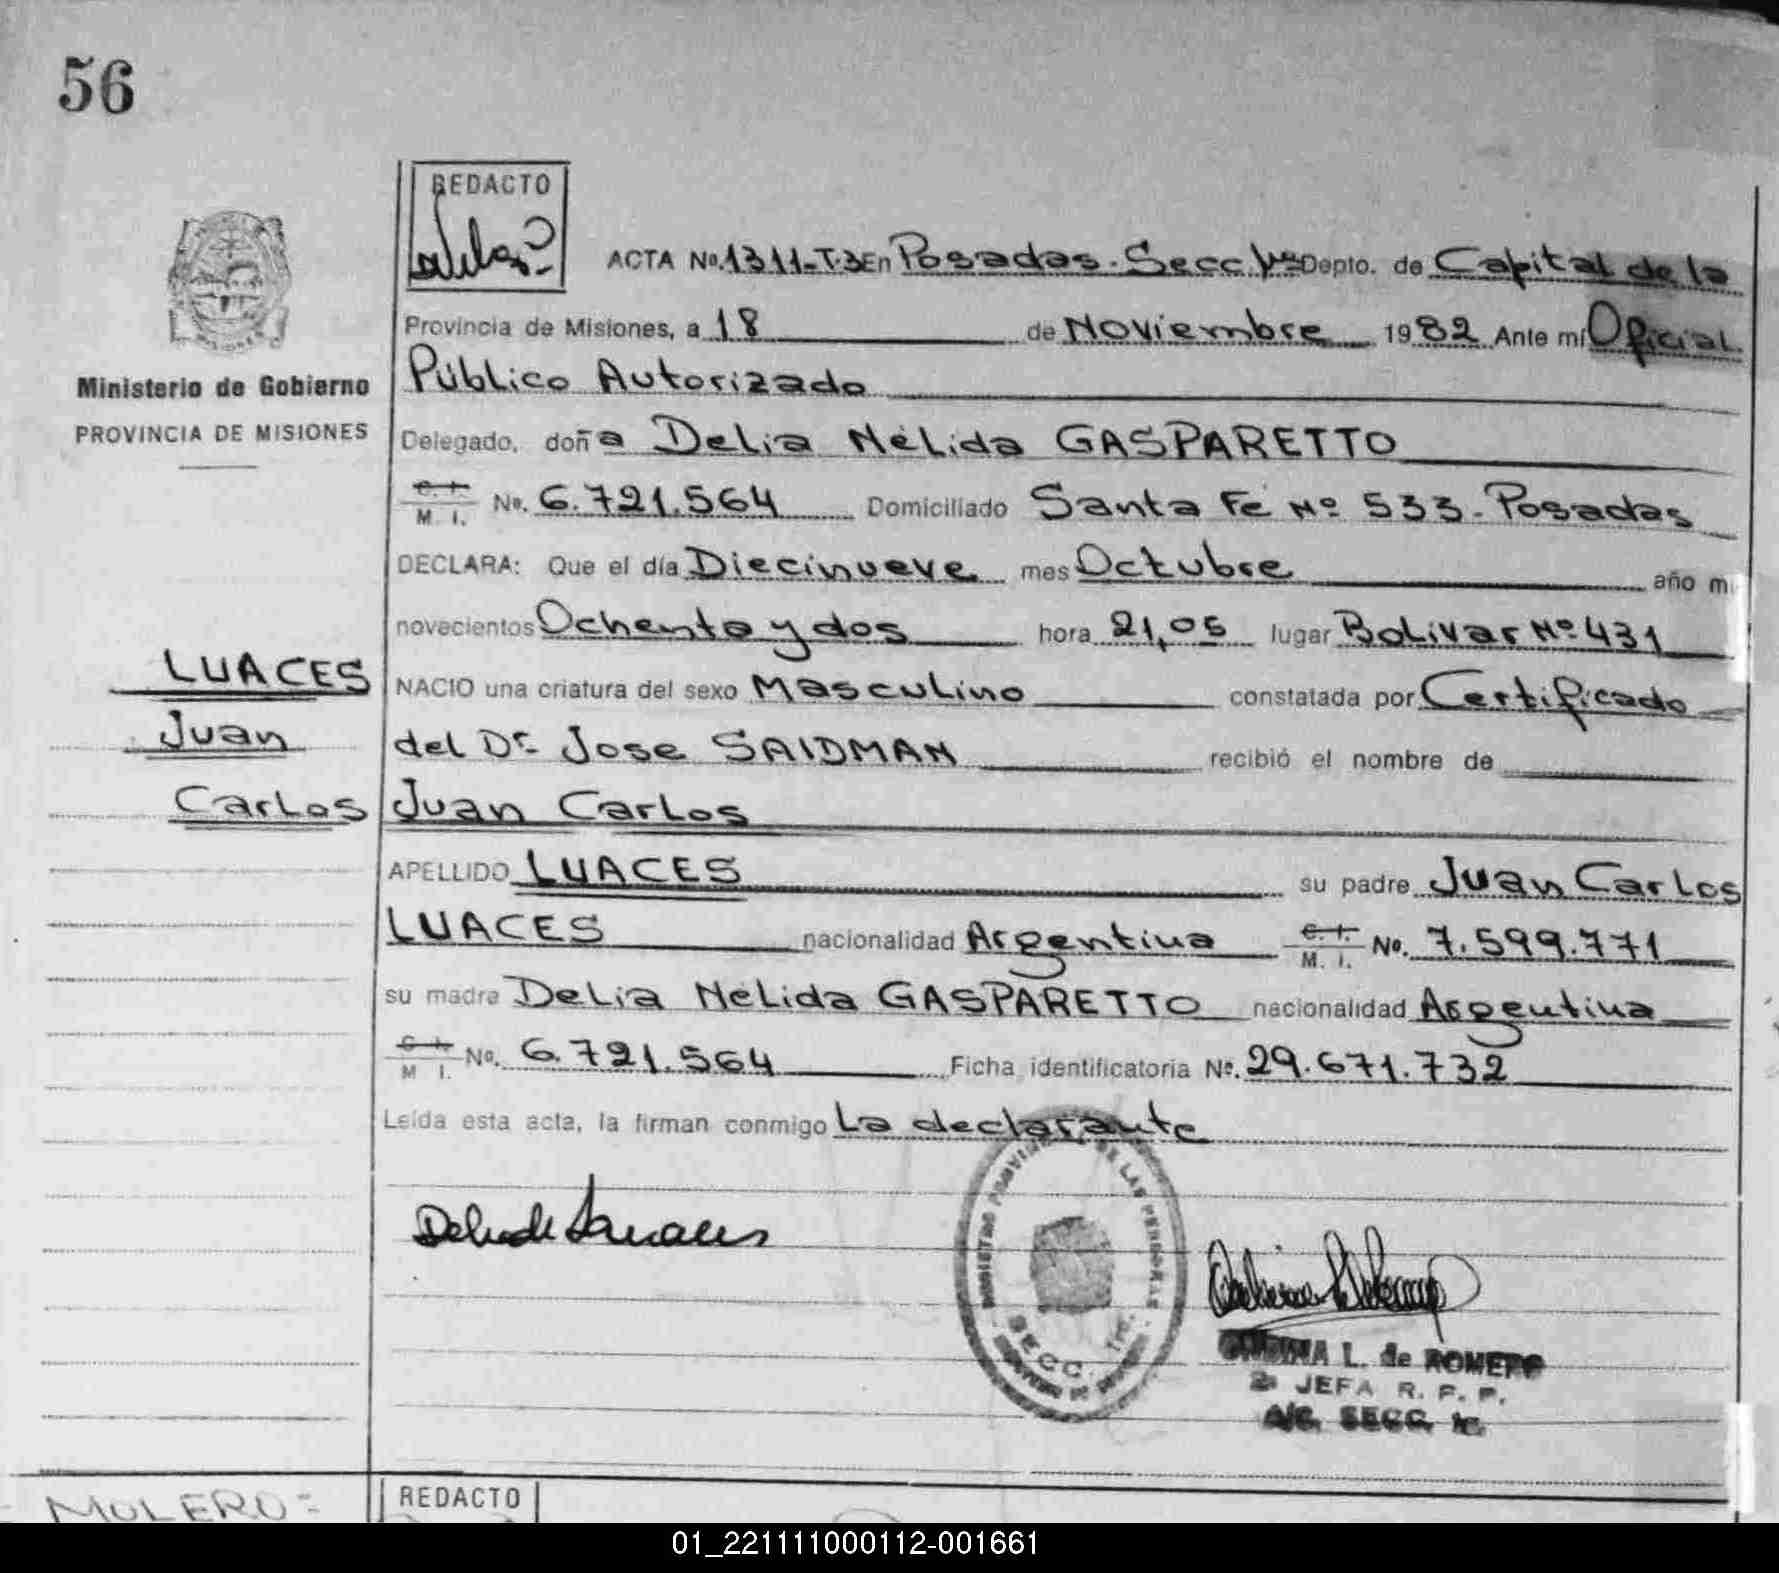 56
REDACTO
ACTA No. 1311-T.3 En Posadas. Secc. 1ra Depto. de Capital de la
Provincia de Misiones, a 18 de Noviembre 1982 Ante mí Oficial
Público Autorizado
Ministerio de Gobierno
PROVINCIA DE MISIONES
Delegado, doña Delia Nélida GASPARETTO
C. I. M. I. No. 6.721.564 Domiciliado Santa Fé Nº 533. Posadas
DECLARA: Que el día Diecinueve mes Octubre año mi
novecientos Ochenta y dos hora 21,05 lugar Bolivar Nº 431
LUACES
NACIO una criatura del sexo Masculino constatada por Certificado
Juan
del Dr. Jose SAIDMAN recibió el nombre de
Carlos
Juan Carlos
APELLIDO LUACES su padre Juan Carlos
LUACES nacionalidad Argentina C. I. M. I. No. 7.599.771
su madre Delia Nélida GASPARETTO nacionalidad Argentina
C. I. M I. No. 6.721.564 Ficha identificatoria Nº. 29.671.732
Leída esta acta, la firman conmigo La declarante
Delia de Luaces
DE LAS PERSONAS
SECC. 1ra.
L. de ROMERO
2a JEFA R. P. P.
A/C. SECC. 1a.
MOLERO=
REDACTO
01_221111000112-001661